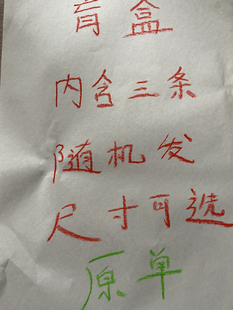 盲盒
内含三条
随机发
尺寸可选
原单